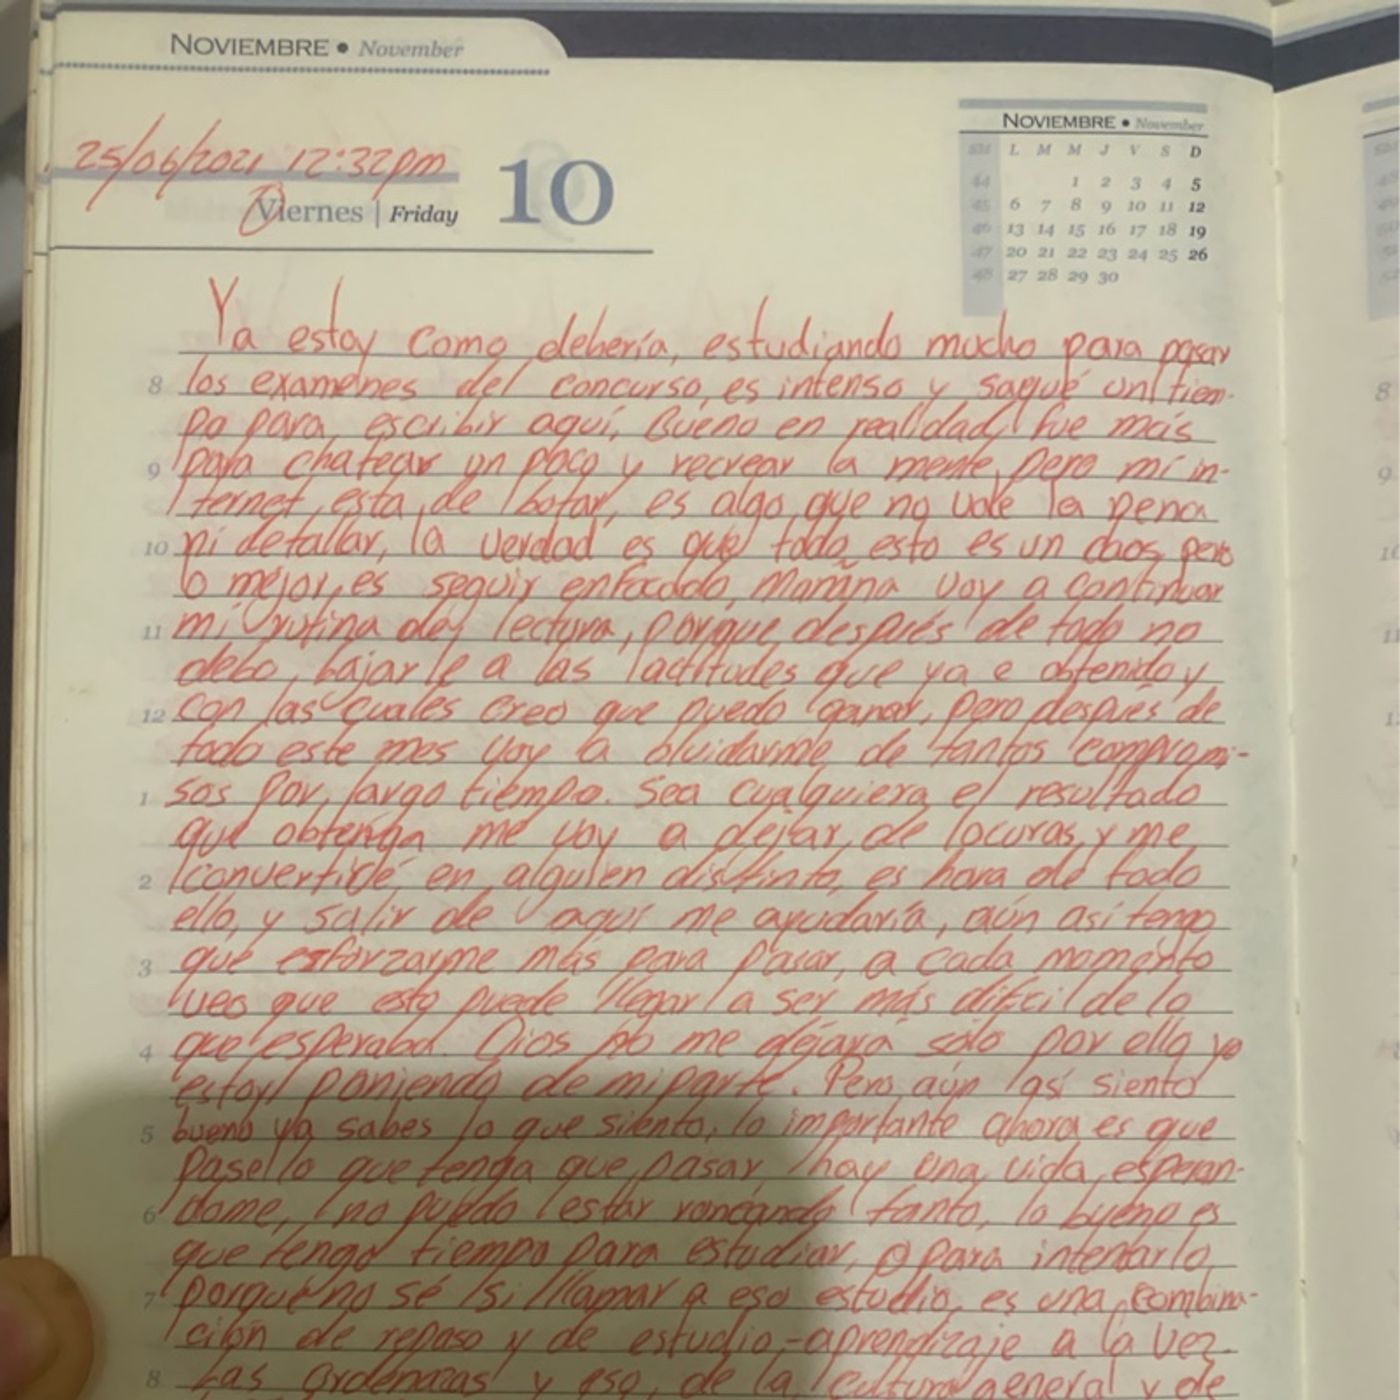 NOVIEMBRE • November
25/06/2021 12:32pm
Viernes | Friday 10
NOVIEMBRE • November
SM L M M J V S D
44 1 2 3 4 5
45 6 7 8 9 10 11 12
46 13 14 15 16 17 18 19
47 20 21 22 23 24 25 26
48 27 28 29 30
Ya estoy como debería, estudiando mucho para pasar
8 los examenes del concurso, es intenso y saqué un tiem-
po para escribir aquí, Bueno en realidad fue más
9 para chatear un poco y recrear la mente, pero mi in-
ternet esta de botar, es algo que no vale la pena
10 ni detallar, la verdad es que todo esto es un caos, pero
lo mejor es seguir enfocado, Mañana voy a continuar
11 mi rutina de lectura, porque después de todo no
debo bajarle a las actitudes que ya e obtenido y
12 con las cuales creo que puedo ganar, pero después de
todo este mes voy a olvidarme de tantos compromi-
1 sos por largo tiempo. Sea cualquiera el resultado
que obtenga me voy a dejar de locuras y me
2 convertiré en alguien distinto, es hora de todo
ello, y salir de aquí me ayudaría, aún así tengo
3 que esforzarme más para pasar, a cada momento
veo que esto puede llegar a ser más difícil de lo
4 que esperaba. Dios no me dejara solo por ello yo
estoy poniendo de mi parte. Pero aún así siento
5 bueno ya sabes lo que siento, lo importante ahora es que
pase lo que tenga que pasar, hay una vida esperan-
6 dome, no puedo estar ronéando tanto, lo bueno es
que tengo tiempo para estudiar, o para intentarlo
7 porque no sé si llamar a eso estudio, es una combina-
ción de repaso y de estudio-aprendizaje a la vez.
8 Las ordenmas y eso, de la cultura general y de